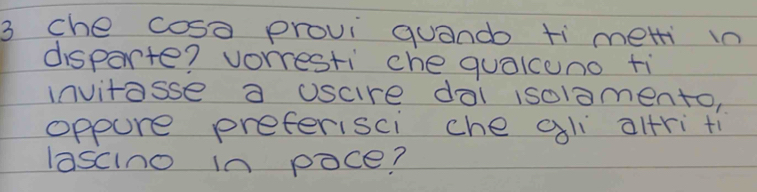 3 che cosa provi quando ti metti in
disparte? vorresti che qualcuno ti
invitasse a uscire dal isolamento,
oppure preferisci che gli altri ti
lascino in pace?